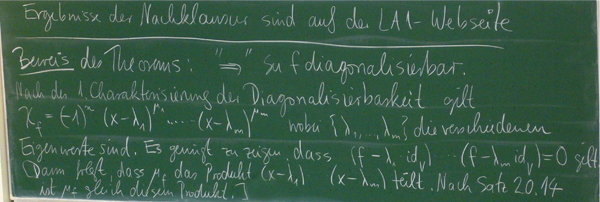 Ergebnisse der Nachklausur sind auf der LA1-Webseite
Beweis des Theorems: "⇒" Sei f diagonalisierbar.
Nach der 1. Charakterisierung der Diagonalisierbarkeit gilt
χ_f = (-1)^n (x-λ_1)^{μ_1} ..... (x-λ_m)^{μ_m} wobei {λ_1, ..., λ_m} die verschiedenen
Eigenwerte sind. Es genügt zu zeigen, dass (f-λ_1 id_V) ... (f-λ_m id_V) = 0 gilt
[Dann folgt, dass μ_f das Produkt (x-λ_1) (x-λ_m) teilt. Nach Satz 20.14
ist μ_f gleich diesem Produkt.]